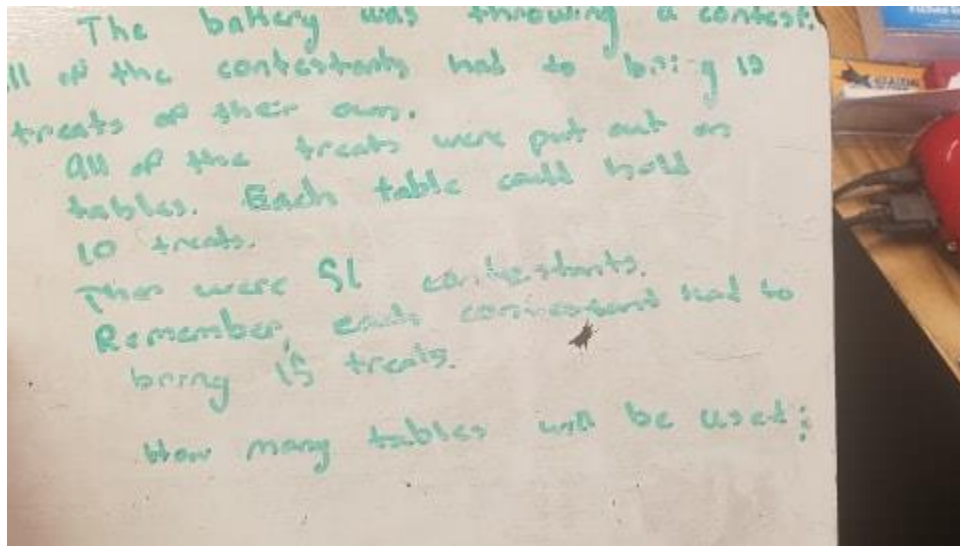 The bakery was throwing a contest.
ll of the contestants had to bring 15
treats of their own.
all of the treats were put out on
tables. Each table could hold
10 treats.
Ther were 51 contestants.
Remember, each contestant had to
bring 15 treats.
How many tables will be used: